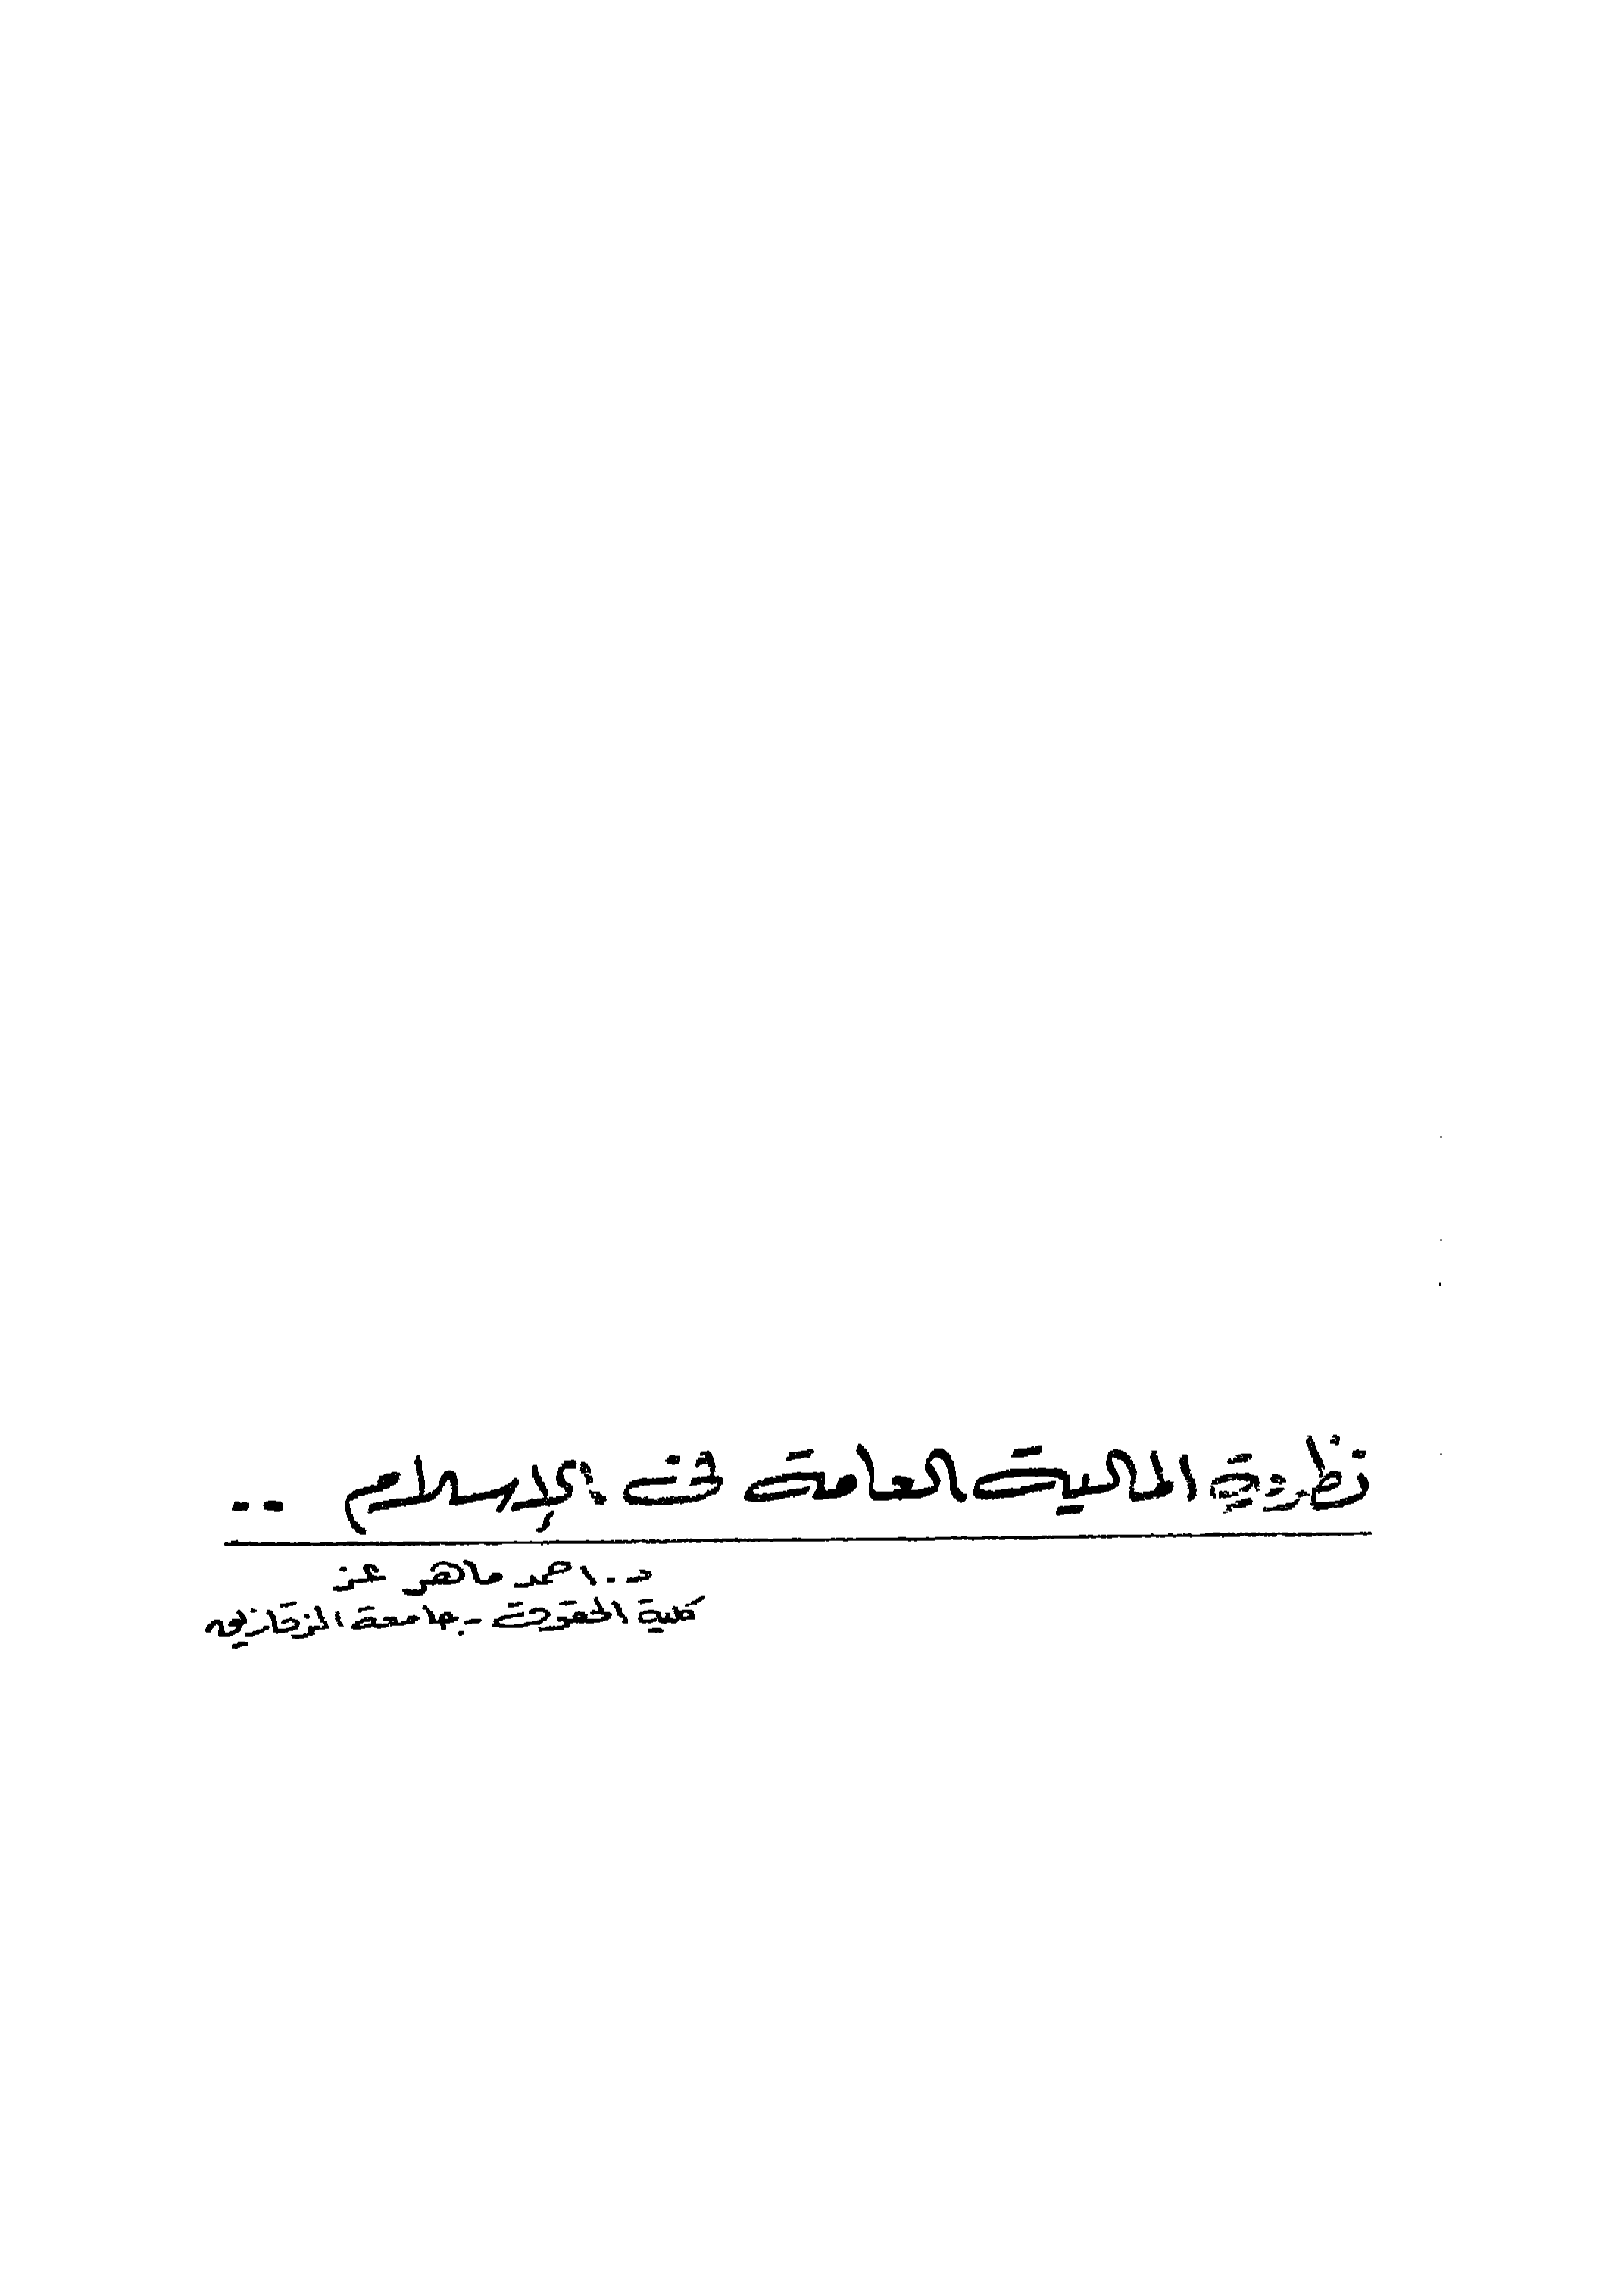 نظرية المالية العامة فى الإسلام ..
د. احمد ماهر عز
كلية الحقوق - جامعة الزقازيق